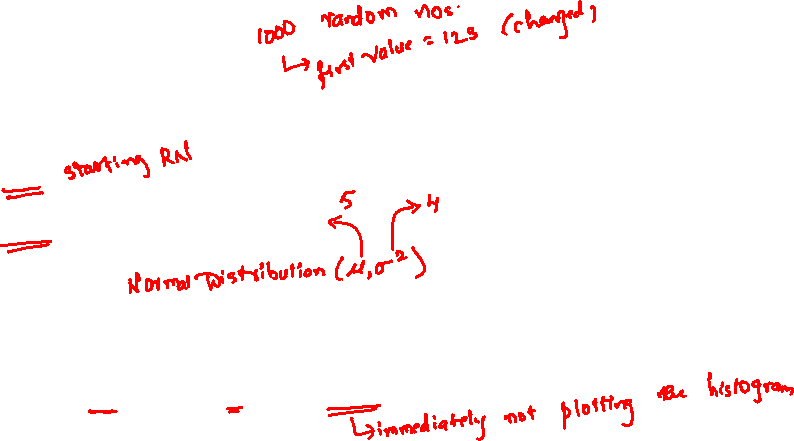 1000 random nos.
↳ first value = 123 (changed)
starting RN
5 4
Normal Distribution (μ, σ²)
↳ immediately not plotting the histogram